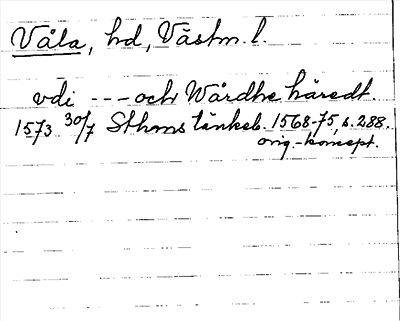 Våla, hd, Västm. l.
vdi --- och Wårdhe häredt.
1573 30/7 Sthms tänkeb. 1568-75, s. 288.
orig.-koncept.